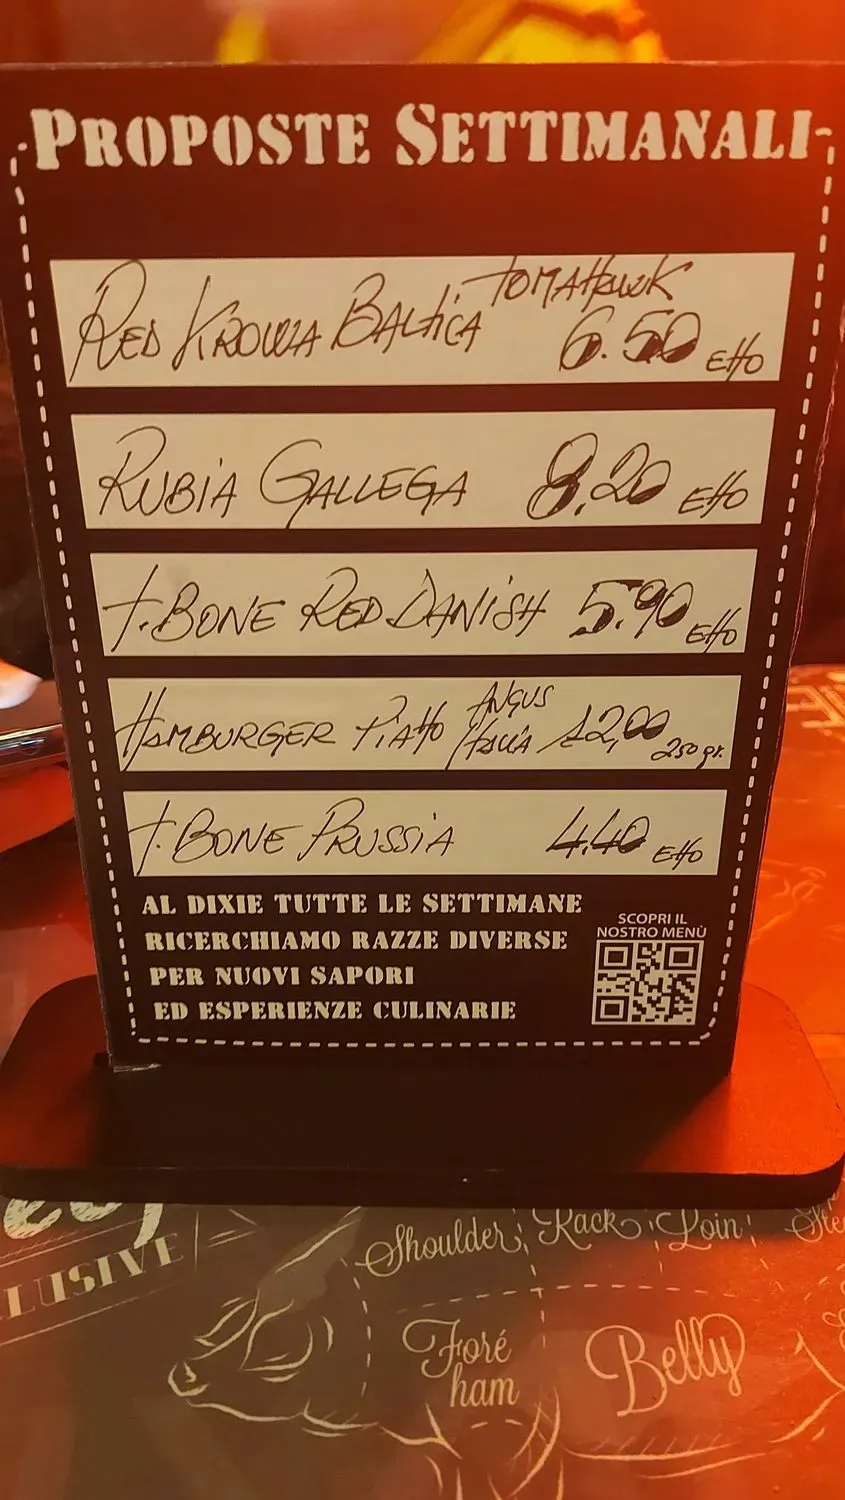 PROPOSTE SETTIMANALI
RED KROWA BALTICA TOMAHAWK 6.50 ETTO
RUBIA GALLEGA 8,20 ETTO
T.BONE RED DANISH 5.90 ETTO
HAMBURGER PIATTO ANGUS ITALIA 12,00 250 gr.
T.BONE PRUSSIA 4.40 ETTO
AL DIXIE TUTTE LE SETTIMANE
RICERCHIAMO RAZZE DIVERSE
PER NUOVI SAPORI
ED ESPERIENZE CULINARIE
SCOPRI IL
NOSTRO MENÙ
Shoulder Rack Loin
Foré
ham
Belly